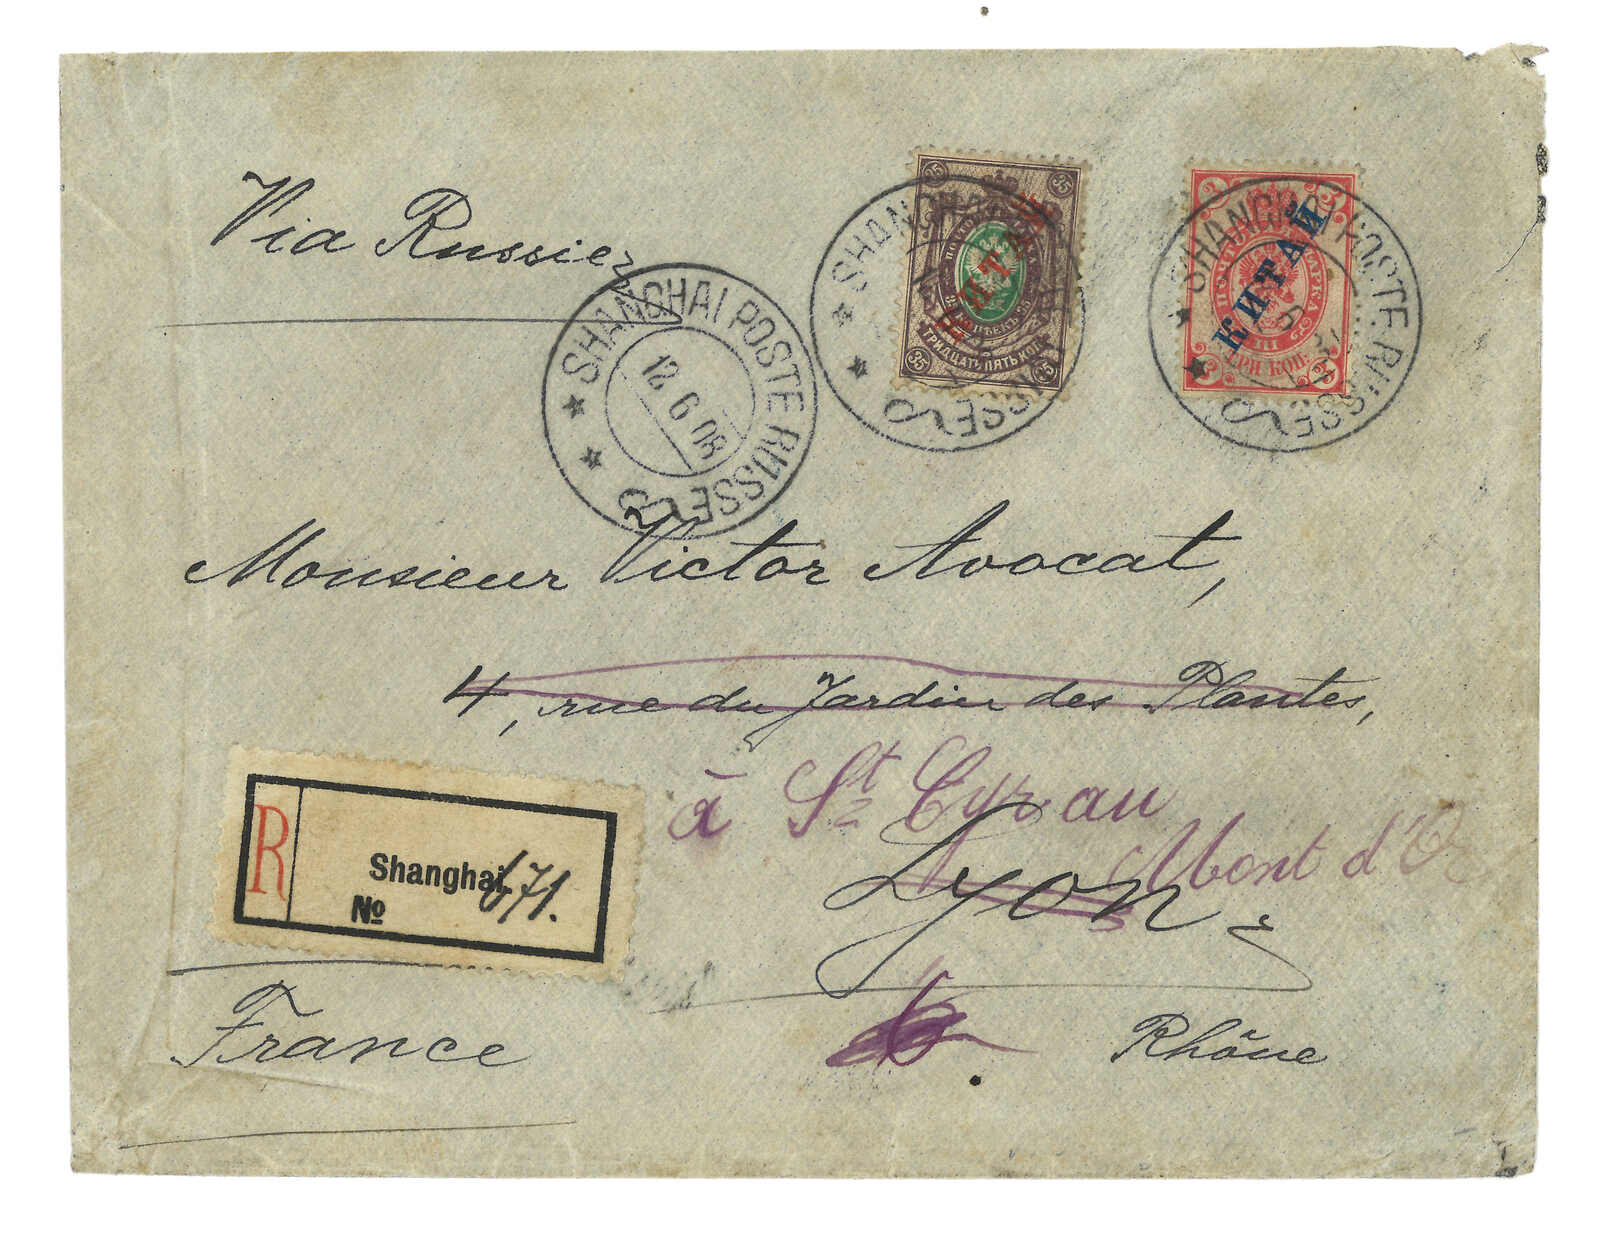 Via Russie
SHANGHAI POSTE RUSSE
12 6 08
SHANGHAI POSTE RUSSE
35 35
КИТАЙ
ТРИДЦАТЬ ПЯТЬ КОП.
35 35
SHANGHAI POSTE RUSSE
3 3
ПОЧТОВАЯ МАРКА
КИТАЙ
ТРИ КОП.
3 3
Monsieur Victor Avocat,
4, rue du Jardin des Plantes,
à St Cyr au
Mont d'Or
Lyon
R
Shanghai
№ 671.
France
Rhône